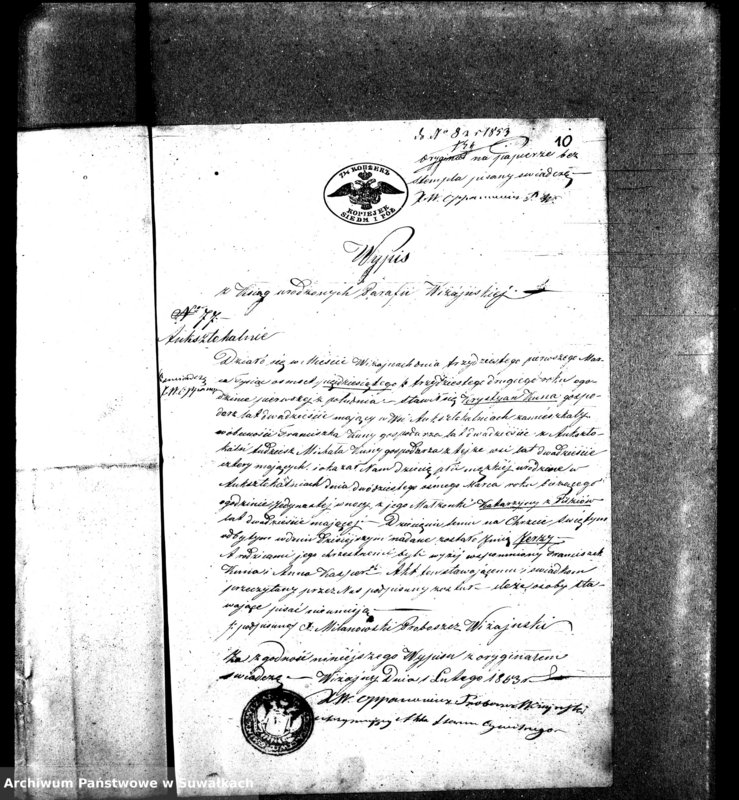 10
do No 82 r 1853
oryginał na papierze bez
stempla pisany świadczę
7½ КОПѢЕКЪ
KOPIEJEK
SIEDM I PÓŁ
Wypis
z Ksiąg urodzonych Parafii Wiżajńskiej
No 77.
Aukszte­kalnie
Działo się w Mieście Wiżajnach dnia trzydziestego pierwszego Mar-
ca tysiąc osmset trzydziestego drugiego roku ogo-
dzinie pierwszej z południa – stawił się Krystyan Kuna gospo-
darz lat dwadzieście mający w Wsi Auksztekalniach zamieszkały
w obecności Franciszka Kuny gospodarza lat dwadzieście z Aukszte-
kalń tudzież Michała Kuny gospodarza z tejże wsi lat dwadzieście
cztery mających i okazał Nam dziecię płci męzkiej urodzone w
Auksztekalniach dnia dwudziestego osmego Marca roku bieżącego
ogodzinie jedynastej w nocy z jego Małżonki Katarzyny z
lat dwadzieście mającej – Dziecięciu temu na Chrzcie świętym
odbytym w dniu dzisiejszym nadane zostało Imię Jerzy
A rodzicami jego chrzestnemi byli wyżej wspomniany Franciszek
Kuna i Anna – Akt ten stawającemu i świadkom
przeczytany przez Nas podpisany został – gdyż osoby sta-
wające pisać nieumieją
podpisany X Milanowski Proboszcz Wiżajnski
Za zgodność niniejszego Wypisu z oryginałem
świadczę – Wiżajny Dnia 1 Lutego 1863 r
Proboszcz Wiżajnski
utrzymujący Akta Stanu Cywilnego
Archiwum Państwowe w Suwałkach